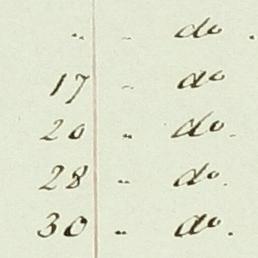 " " do.
17 " do
20 " do.
28 " do.
30 " do.